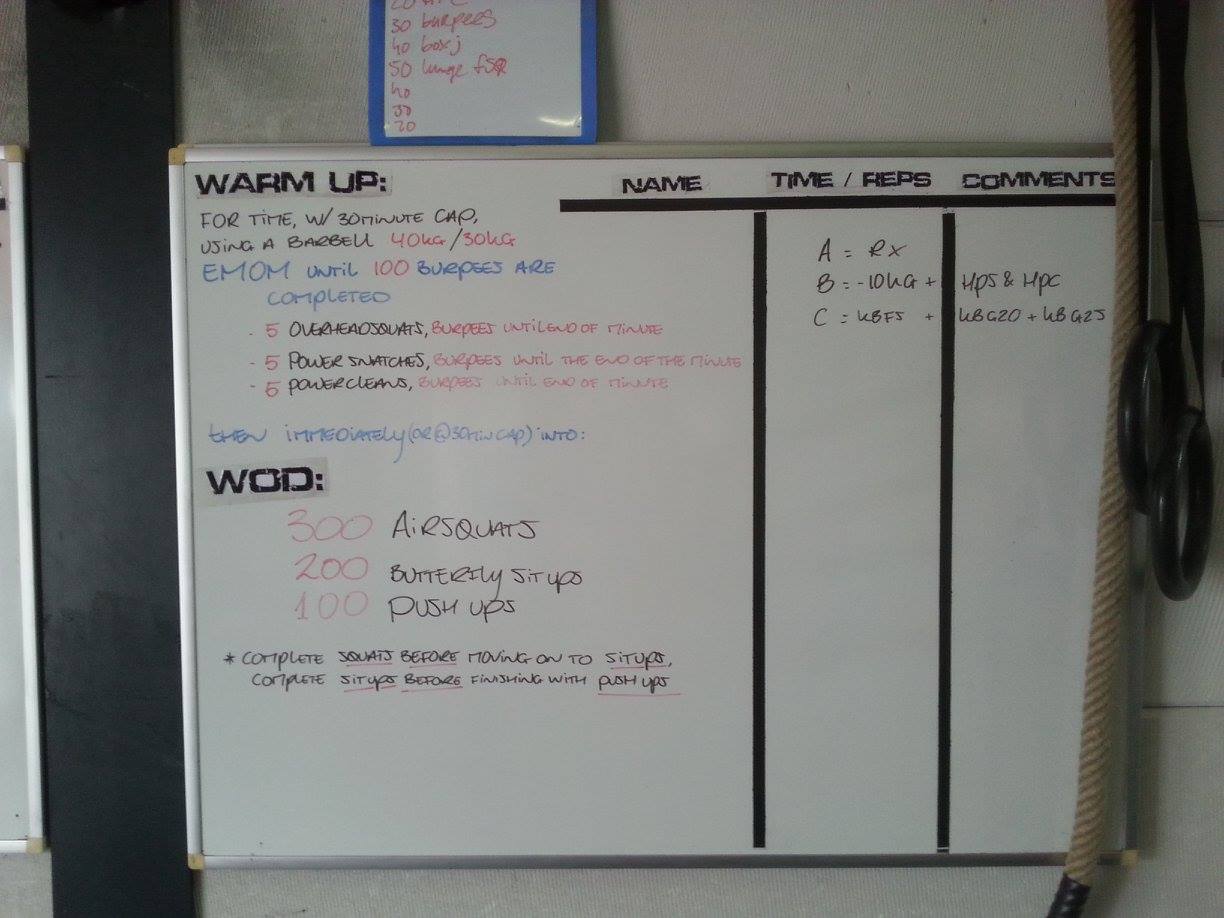 30 burpees
40 box j
50 lunge fSQ
40
30
20
WARM UP:
NAME
TIME / REPS
COMMENTS
FOR TIME, W/ 30MINUTE CAP,
USING A BARBELL 40KG/30KG
EMOM UNTIL 100 BURPEES ARE
COMPLETED
- 5 OVERHEADSQUATS, BURPEES UNTIL END OF MINUTE
- 5 POWER SNATCHES, BURPEES UNTIL THE END OF THE MINUTE
- 5 POWERCLEANS, BURPEES UNTIL END OF MINUTE
THEN IMMEDIATELY (OR @30MIN CAP) INTO:
WOD:
300 AIRSQUATS
200 BUTTERFLY SIT UPS
100 PUSH UPS
* COMPLETE SQUATS BEFORE MOVING ON TO SITUPS,
COMPLETE SITUPS BEFORE FINISHING WITH PUSH UPS
A = RX
B = -10KG + HPS & HPC
C = KBFS + KBG20 + KBG25